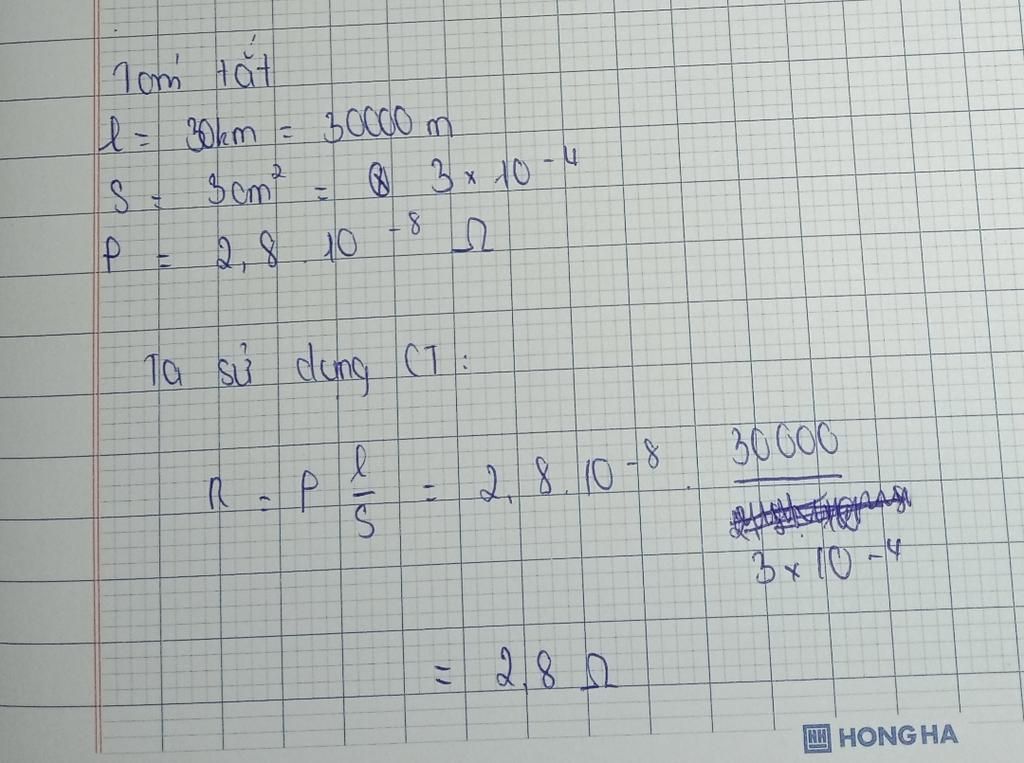 Tóm tắt
l = 30km = 30000 m
S = 3cm² = 3 × 10⁻⁴
P = 2,8 . 10⁻⁸ Ω
Ta sử dụng CT:
R = P l/S = 2,8.10⁻⁸ . 30000 / 3 × 10⁻⁴
= 2,8 Ω
HH HONG HA